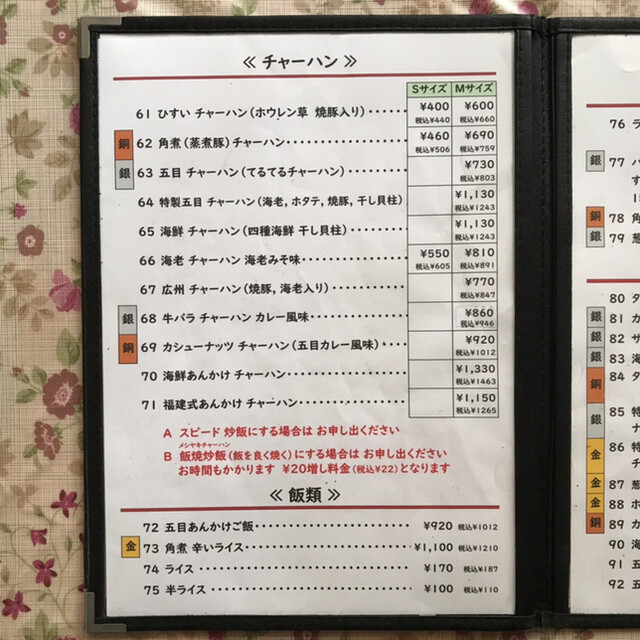 ≪ チャーハン ≫
Sサイズ Mサイズ
61 ひすい チャーハン(ホウレン草 焼豚入り)・・・・・・ ¥400 税込¥440 ¥600 税込¥660
銅 62 角煮(蒸煮豚)チャーハン・・・・・・・・・・・・ ¥460 税込¥506 ¥690 税込¥759
銀 63 五目 チャーハン(てるてるチャーハン)・・・・・・・ ¥730 税込¥803
64 特製五目 チャーハン(海老, ホタテ, 焼豚, 干し貝柱) ¥1,130 税込¥1243
65 海鮮 チャーハン(四種海鮮 干し貝柱)・・・・・・・ ¥1,130 税込¥1243
66 海老 チャーハン 海老みそ味・・・・・・・・・・・ ¥550 税込¥605 ¥810 税込¥891
67 広州 チャーハン(焼豚, 海老入り)・・・・・・・・・ ¥770 税込¥847
銀 68 牛バラ チャーハン カレー風味・・・・・・・・・・ ¥860 税込¥946
銅 69 カシューナッツ チャーハン(五目カレー風味)・・・ ¥920 税込¥1012
70 海鮮あんかけ チャーハン・・・・・・・・・・・・ ¥1,330 税込¥1463
71 福建式あんかけ チャーハン・・・・・・・・・・・ ¥1,150 税込¥1265
A スピード炒飯にする場合は お申し出ください
メシヤキチャーハン
B 飯焼炒飯(飯を良く焼く)にする場合は お申し出ください
お時間もかかります ¥20増し料金(税込¥22)となります
≪ 飯類 ≫
72 五目あんかけご飯・・・・・・・・・・・・・・・・ ¥920 税込¥1012
金 73 角煮 辛いライス・・・・・・・・・・・・・・・・ ¥1,100 税込¥1210
74 ライス・・・・・・・・・・・・・・・・・・・・・ ¥170 税込¥187
75 半ライス・・・・・・・・・・・・・・・・・・・・ ¥100 税込¥110
76 ラ
銀 77
す
銅 78 角
銀 79 葱
80 タ
銀 81 カ
銀 82 サ
銀 83 海
銅 84 タ
銀 85 特
ナ
金 86 特
チ
金 87 葱
金 88 ホ
銅 89 カ
90 海
91 五
92 五